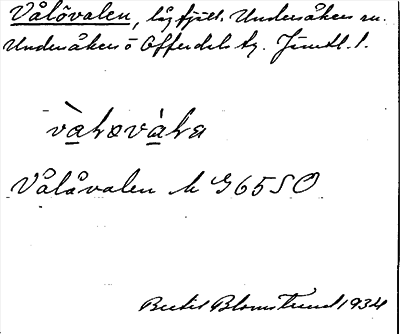 Vålåvalen, låg fjäll. Undersåkers sn.
Undersåkers o Offerdals tg. Jämtl. l.
vàhovàha
Vålåvalen k G65SO
Bertil Blomstrand 1934